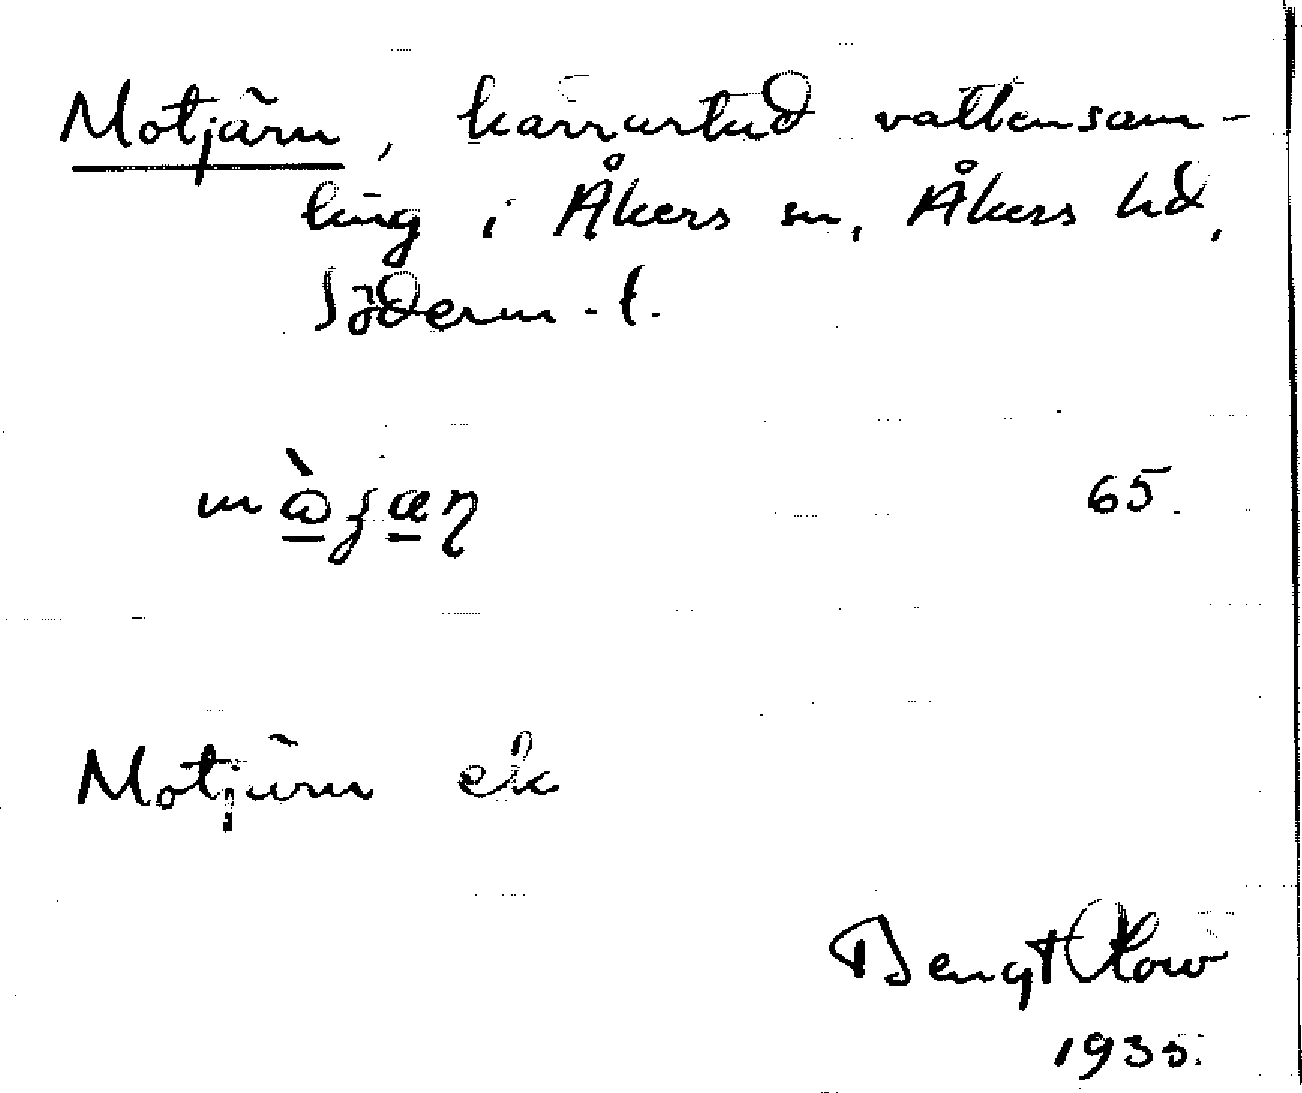 Motjärn, kärrartad vattensam-
ling i Åkers sn, Åkers hd,
Söderm. l.
65.
Motjärn ek
Bengt
1935.